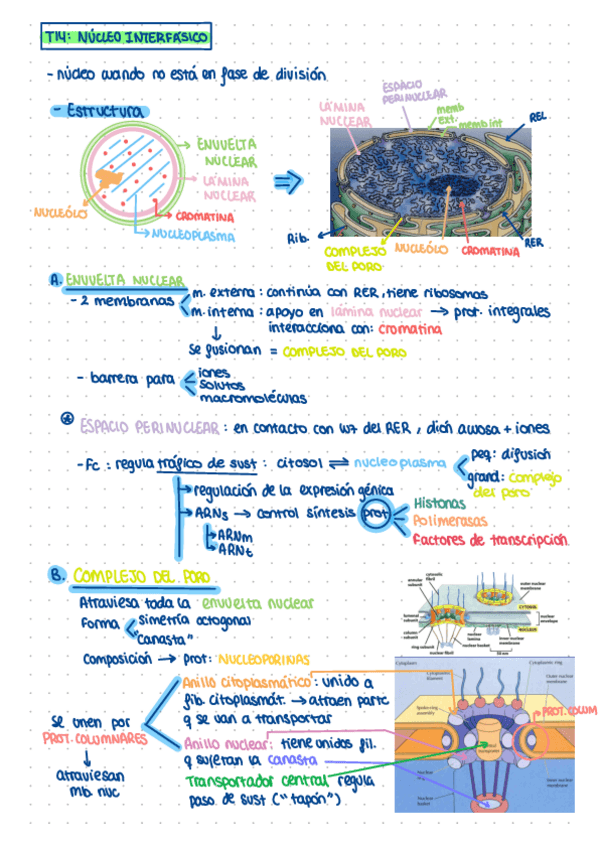 T14: NÚCLEO INTERFÁSICO
- núcleo cuando no está en fase de división
- Estructura
ENVUELTA NUCLEAR
LÁMINA NUCLEAR
CROMATINA
NUCLEOPLASMA
NUCLEÓLO
LÁMINA NUCLEAR
ESPACIO PERINUCLEAR
memb ext.
memb int
REL
Rib.
COMPLEJO DEL PORO
NUCLEÓLO
CROMATINA
RER
A. ENVUELTA NUCLEAR
- 2 membranas
m. externa : continúa con RER, tiene ribosomas
m. interna : apoyo en lámina nuclear → prot. integrales
interacciona con: cromatina
↓
se fusionan = COMPLEJO DEL PORO
- barrera para
iones
solutos
macromoléculas
ESPACIO PERINUCLEAR : en contacto con luz del RER, disol acuosa + iones
- Fc : regula tráfico de sust : citosol ⇌ nucleoplasma
peq: difusión
grand: complejo del poro
→ regulación de la expresión génica
→ ARNs → control síntesis prot
ARNm
ARNt
Histonas
Polimerasas
Factores de transcripción
B. COMPLEJO DEL PORO
Atraviesa toda la envuelta nuclear
Forma
simetría octogonal
"canasta"
Composición → prot: NUCLEOPORINAS
Anillo citoplasmático : unido a
fib. citoplasmát. → atraen partc
q se van a transportar
se unen por
PROT. COLUMNARES
↓
atraviesan
mb. nuc
Anillo nuclear: tiene unidos fil.
q sujetan la canasta
Transportador central regula
paso de sust ("tapón")
annular subunit
cytosolic fibril
outer nuclear membrane
CYTOSOL
lumenal subunit
nuclear envelope
NUCLEUS
column subunit
ring subunit
nuclear fibril
nuclear lamina
nuclear basket
inner nuclear membrane
50 nm
Cytoplasm
Cytoplasmic filament
Cytoplasmic ring
Outer nuclear membrane
Spoke-ring assembly
PROT. COLUM
Nuclear ring
Nuclear basket
Inner nuclear membrane